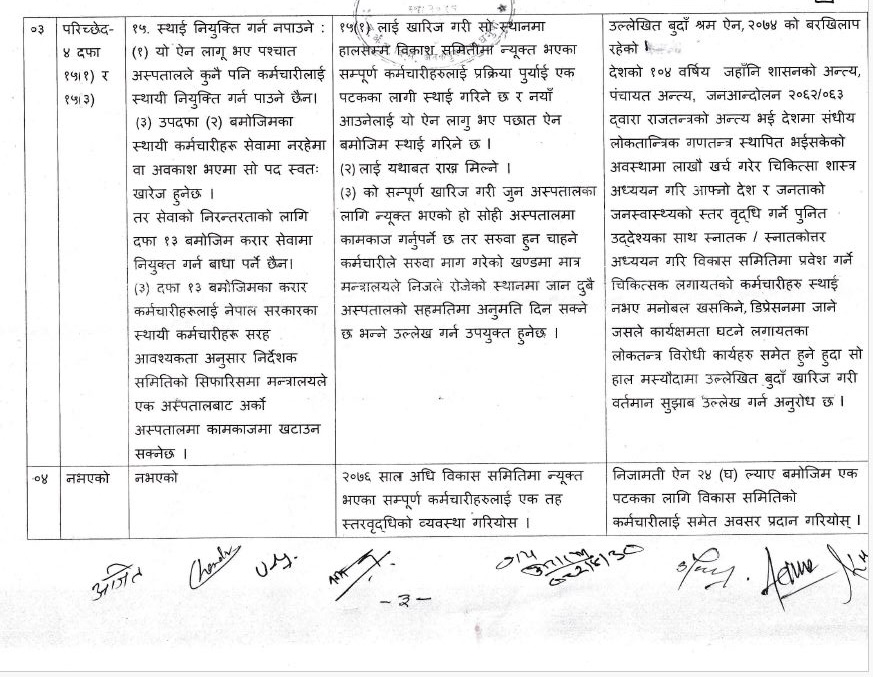 ०३
परिच्छेद-
४ दफा
१५(१) र
१५(३)
१५. स्थाई नियुक्ति गर्न नपाउने :
(१) यो ऐन लागू भए पश्चात
अस्पतालले कुनै पनि कर्मचारीलाई
स्थायी नियुक्ति गर्न पाउने छैन।
(३) उपदफा (२) बमोजिमका
स्थायी कर्मचारीहरू सेवामा नरहेमा
वा अवकाश भएमा सो पद स्वतः
खारेज हुनेछ ।
तर सेवाको निरन्तरताको लागि
दफा १३ बमोजिम करार सेवामा
नियुक्त गर्न बाधा पर्ने छैन।
(३) दफा १३ बमोजिमका करार
कर्मचारीहरूलाई नेपाल सरकारका
स्थायी कर्मचारीहरू सरह
आवश्यकता अनुसार निर्देशक
समितिको सिफारिसमा मन्त्रालयले
एक अस्पतालबाट अर्को
अस्पतालमा कामकाजमा खटाउन
सक्नेछ ।
१५(१) लाई खारिज गरी सो स्थानमा
हालसम्म विकाश समितीमा न्यूक्त भएका
सम्पूर्ण कर्मचारीहरुलाई प्रक्रिया पुर्याई एक
पटकका लागी स्थाई गरिने छ र नयाँ
आउनेलाई यो ऐन लागु भए पछात ऐन
बमोजिम स्थाई गरिने छ ।
(२) लाई यथाबत राख्न मिल्ने ।
(३) को सम्पूर्ण खारिज गरी जुन अस्पतालका
लागि न्यूक्त भएको हो सोही अस्पतालमा
कामकाज गर्नुपर्ने छ तर सरुवा हुन चाहने
कर्मचारीले सरुवा माग गरेको खण्डमा मात्र
मन्त्रालयले निजले रोजेको स्थानमा जान दुबै
अस्पतालको सहमतिमा अनुमति दिन सक्ने
छ भन्ने उल्लेख गर्न उपयुक्त हुनेछ ।
उल्लेखित बुदाँ श्रम ऐन,२०७४ को बरखिलाप
रहेको ।
देशको १०४ वर्षिय जहाँनि शासनको अन्त्य,
पंचायत अन्त्य, जनआन्दोलन २०६२/०६३
द्वारा राजतन्त्रको अन्त्य भई देशमा संघीय
लोकतान्त्रिक गणतन्त्र स्थापित भईसकेको
अवस्थामा लाखौ खर्च गरेर चिकित्सा शास्त्र
अध्ययन गरि आफ्नो देश र जनताको
जनस्वास्थ्यको स्तर वृद्धि गर्ने पुनित
उद्देश्यका साथ स्नातक / स्नातकोत्तर
अध्ययन गरि विकास समितिमा प्रवेश गर्ने
चिकित्सक लगायतको कर्मचारीहरु स्थाई
नभए मनोबल खसकिने,डिप्रेसनमा जाने
जसले कार्यक्षमता घटने लगायतका
लोकतन्त्र विरोधी कार्यहरु समेत हुने हुदा सो
हाल मस्यौदामा उल्लेखित बुदाँ खारिज गरी
वर्तमान सुझाब उल्लेख गर्न अनुरोध छ ।
०४
नभएको
नभएको
२०७६ साल अधि विकास समितिमा न्यूक्त
भएका सम्पूर्ण कर्मचारीहरुलाई एक तह
स्तरवृद्धिको व्यवस्था गरियोस ।
निजामती ऐन २४ (घ) ल्याए बमोजिम एक
पटकका लागि विकास समितिको
कर्मचारीलाई समेत अवसर प्रदान गरियोस् ।
-३-